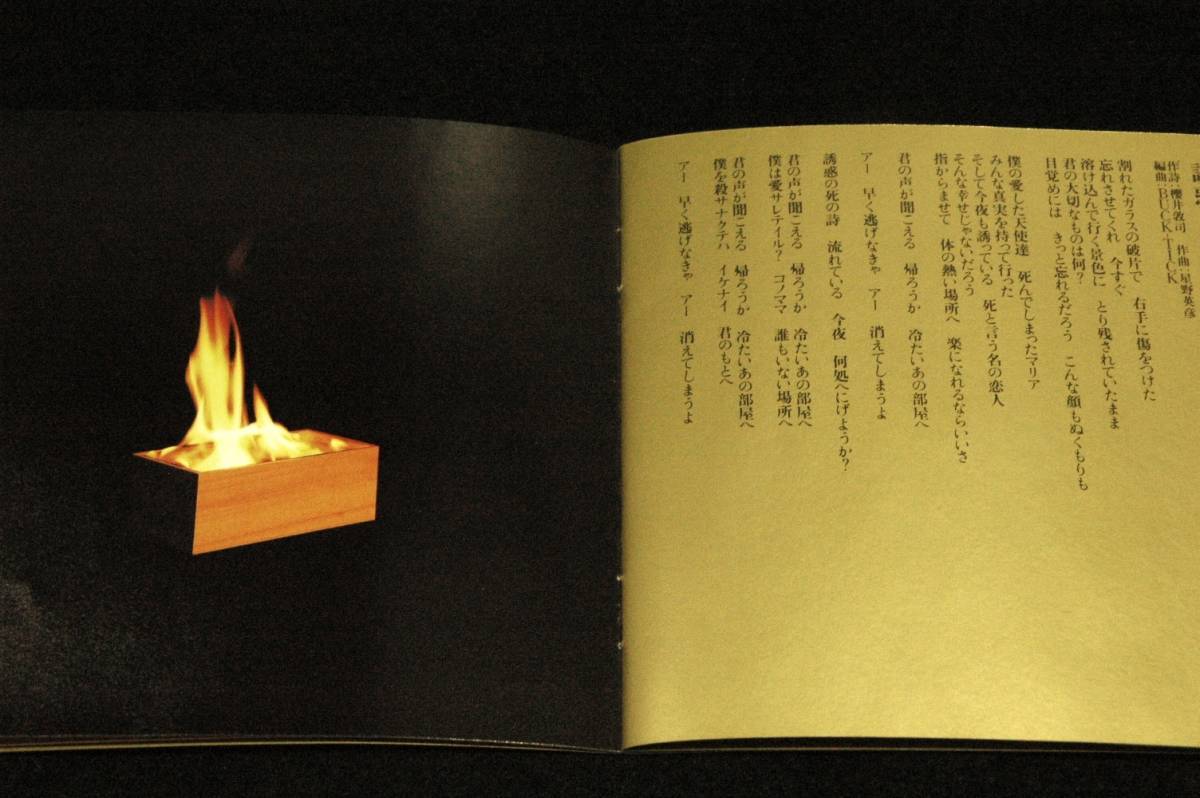 作詩：櫻井敦司　作曲：星野英彦
編曲：BUCK-TICK
割れたガラスの破片で　右手に傷をつけた
忘れさせてくれ　今すぐ
溶け込んで行く景色に　とり残されていたまま
君の大切なものは何？
目覚めには　きっと忘れるだろう　こんな顔もぬくもりも
僕の愛した天使達　死んでしまったマリア
みんな真実を持って行った
そして今夜も誘っている　死と言う名の恋人
そんな幸せじゃないだろう
指からませて　体の熱い場所へ　楽になれるならいいさ
君の声が聞こえる　帰ろうか　冷たいあの部屋へ
アー　早く逃げなきゃ　アー　消えてしまうよ
誘惑の死の詩　流れている　今夜　何処へにげようか？
君の声が聞こえる　帰ろうか　冷たいあの部屋へ
僕は愛サレテイル？　コノママ　誰もいない場所へ
君の声が聞こえる　帰ろうか　冷たいあの部屋へ
僕を殺サナクテハ　イケナイ　君のもとへ
アー　早く逃げなきゃ　アー　消えてしまうよ